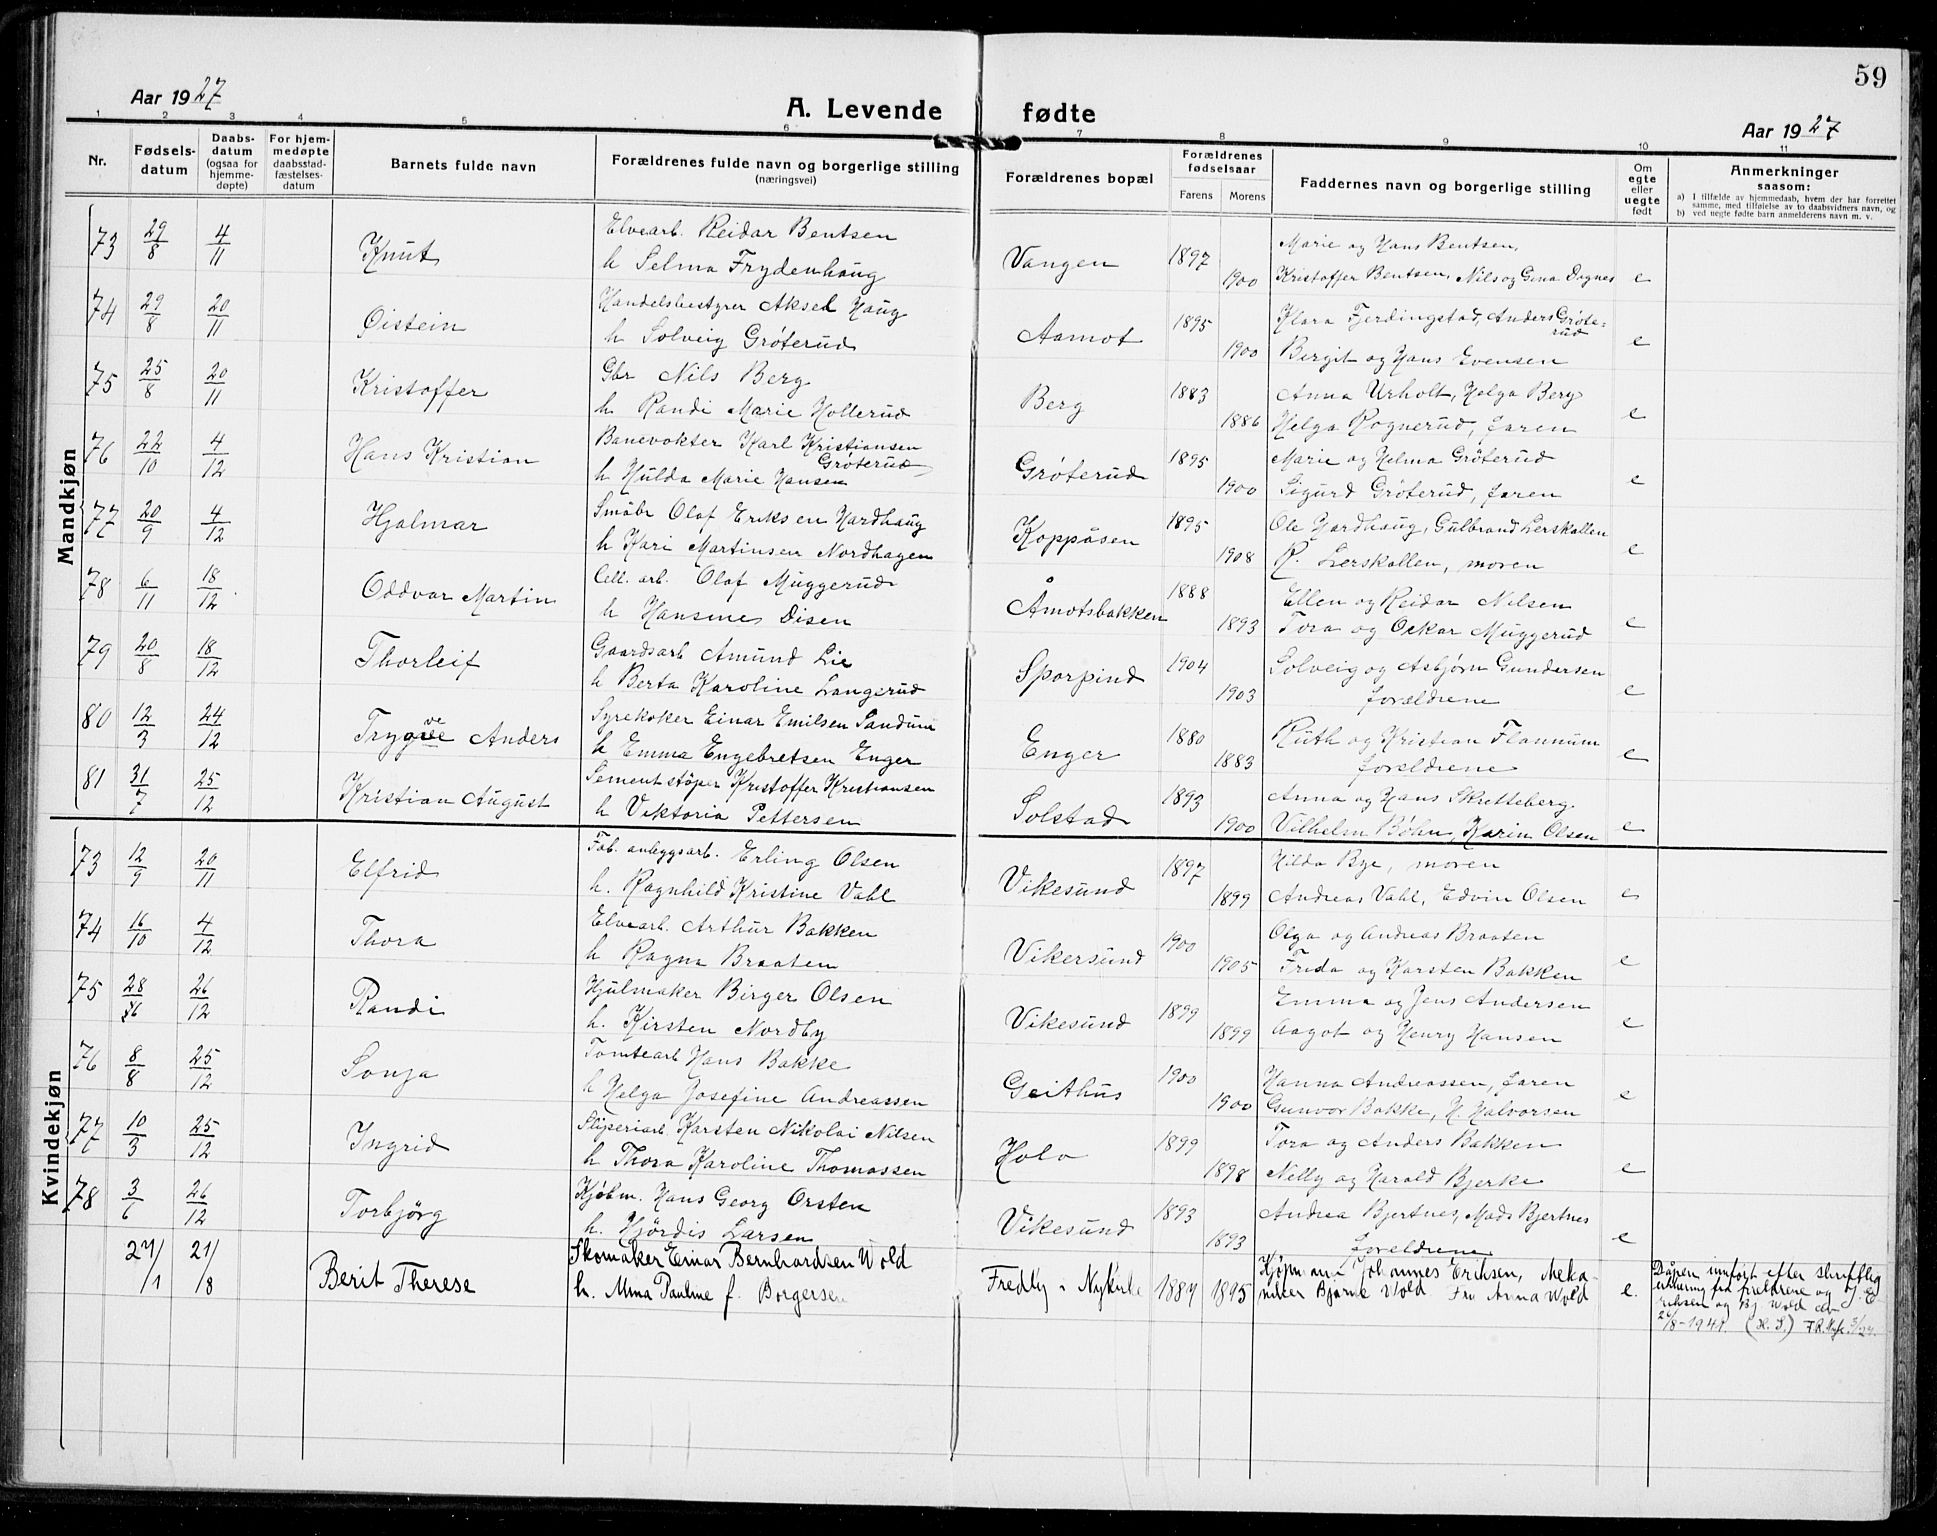 59
Aar 1927 A. Levende fødte Aar 1927
1 2 3 4 5 6 7 8 9 10 11
Nr. Fødsels-datum Daabs-datum (ogsaa for hjemme-døpte) For hjem-medøpte daabsstad-fæstelses-datum Barnets fulde navn Forældrenes fulde navn og borgerlige stilling (næringsvei) Forældrenes bopæl Forældrenes fødselsaar Farens Morens Faddernes navn og borgerlige stilling Om egte eller uegte født Anmerkninger saasom:
a) I tilfælde av hjemmedaab, hvem der har forrettet samme, med tilføielse av to daabsvidners navn, og
b) ved uegte fødte barn anmelderens navn m. v.
Mandkjøn
73 29/8 4/11 Knut Elvearb. Reidar Bentsen Vangen 1897 Marie og Hans Bentsen,
h Selma Frydenhaug 1900 Kristoffer Bentsen, Nils og Gina Dognes e
74 29/8 20/11 Øistein Handelsbestyrer Aksel Haug Aamot 1895 Klara Fjerdingstad, Anders Grøterud
h Solveig Grøterud 1900 Birgit og Hans Evensen e
75 25/8 20/11 Kristoffer Gbr Nils Berg Berg 1883 Anna Urholt, Helga Berg
h Randi Marie Hollerud 1886 Helga Rognerud, faren e
76 22/10 4/12 Hans Kristian Banevokter Karl Kristiansen Grøterud Grøterud 1895 Marie og Helma Grøterud
h Hulda Marie Hansen 1900 Sigurd Grøterud, faren e
77 20/9 4/12 Hjalmar Småbr Olaf Eriksen Hardhaug Koppåsen 1895 Ole Hardhaug, Gulbrand Lerskallen
h Kari Martinsen Nordhagen 1908 R. Lerskallen, moren e
78 6/11 18/12 Oddvar Martin Cell. arb. Olaf Muggerud Åmotsbakken 1888 Ellen og Reidar Nilsen
h Hansine Disen 1893 Tora og Oskar Muggerud e
79 20/8 18/12 Thorleif Gaardsarb Amund Lie Sporpind 1904 Solveig og Asbjørn Gundersen
h Berta Karoline Langerud 1903 forældrene e
80 12/3 24/12 Trygve Anders Syrekoker Einar Emilsen Sandum Enger 1880 Ruth og Kristian Flannum
h Emma Engebretsen Enger 1883 foreldrene e
81 31/7 25/12 Kristian August Sementstøper Kristoffer Kristiansen Solstad 1893 Anna og Hans Skretteberg
h Viktoria Pettersen 1900 Vilhelm Bøhn, Karin Olsen e
Kvindekjøn
73 12/9 20/11 Elfrid Fab. anleggsarb. Erling Olsen Vikesund 1897 Hilda Bye, moren
h. Ragnhild Kristine Vahl 1899 Andreas Vahl, Edvin Olsen e
74 16/10 4/12 Thora Elvearb. Arthur Bakken Vikersund 1900 Olga og Andreas Braaten
h Ragna Braaten 1905 Frida og Karsten Bakken e
75 28/6 26/12 Randi Hjulmaker Birger Olsen Vikesund 1899 Emma og Jens Andersen
h. Kirsten Nordby 1899 Aagot og Henry Hansen e
76 8/8 25/12 Sonja Tomtearb Hans Bakke Geithus 1900 Hanna Andreassen, faren
h Helga Josefine Andreassen 1900 Gunvor Bakke, H. Halvorsen e
77 10/3 25/12 Ingrid Sliperiarb. Karsten Nikolai Nilsen Holo 1899 Tora og Anders Bakken
h Thora Karoline Thomassen 1898 Nelly og Harald Bjerke e
78 3/6 26/12 Torbjørg Kjøbm. Hans Georg Orsten Vikesund 1893 Andrea Bjertnes, Mads Bjertnes
h. Hjørdis Larsen 1893 foreldrene e
27/1 21/8 Berit Therese Skomaker Einar Bernhardsen Wold Kjøpmann Johannes Eriksen, Meka-
h. Mina Pauline f. Borgersen Fredly i Nykirke 1887 1895 niker Bjarne Wold Fru Anna Wold e.
Dåpen innført efter skriftlig
erklæring fra foreldrene og J. E-
riksen og Bj. Wold av
2/8-1941. (H. S.)